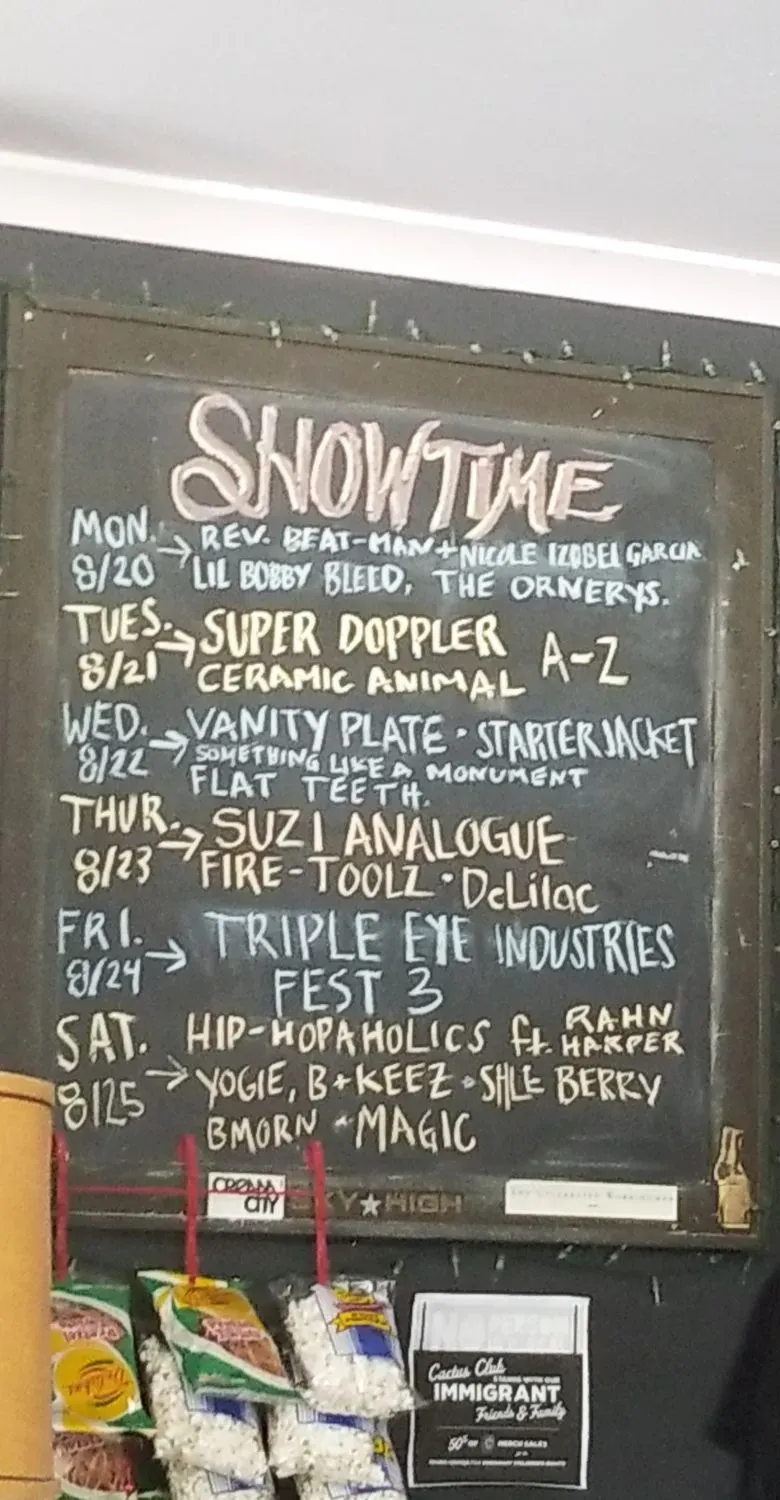 SHOWTIME
MON. 8/20 → REV. BEAT-MAN + NICOLE IZOBEL GARCIA
LIL BOBBY BLEED, THE ORNERYS.
TUES. 8/21 → SUPER DOPPLER A-Z
CERAMIC ANIMAL
WED. 8/22 → VANITY PLATE · STARTER JACKET
SOMETHING LIKE A MONUMENT
FLAT TEETH.
THUR. 8/23 → SUZI ANALOGUE
FIRE-TOOLZ · DeLilac
FRI. 8/24 → TRIPLE EYE INDUSTRIES
FEST 3
SAT. 8/25 → HIP-HOPAHOLICS ft. RAHN HARPER
YOGIE, B+KEEZ · SHLE BERRY
BMORN · MAGIC
CREAM CITY
SKY★HIGH
Cactus Club
STANDS WITH OUR
IMMIGRANT
Friends & Family
50% OF MERCH SALES